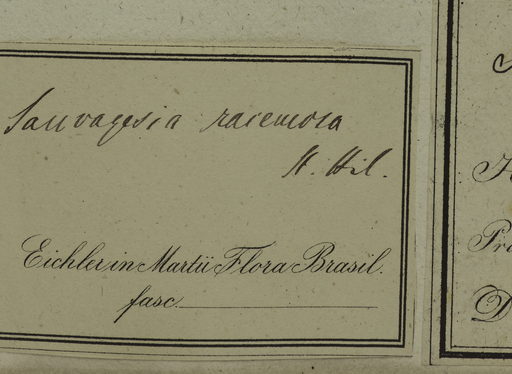 Sauvagesia racemosa
St. Hil.
Eichler in Martii Flora Brasil.
fasc.
Pr
D